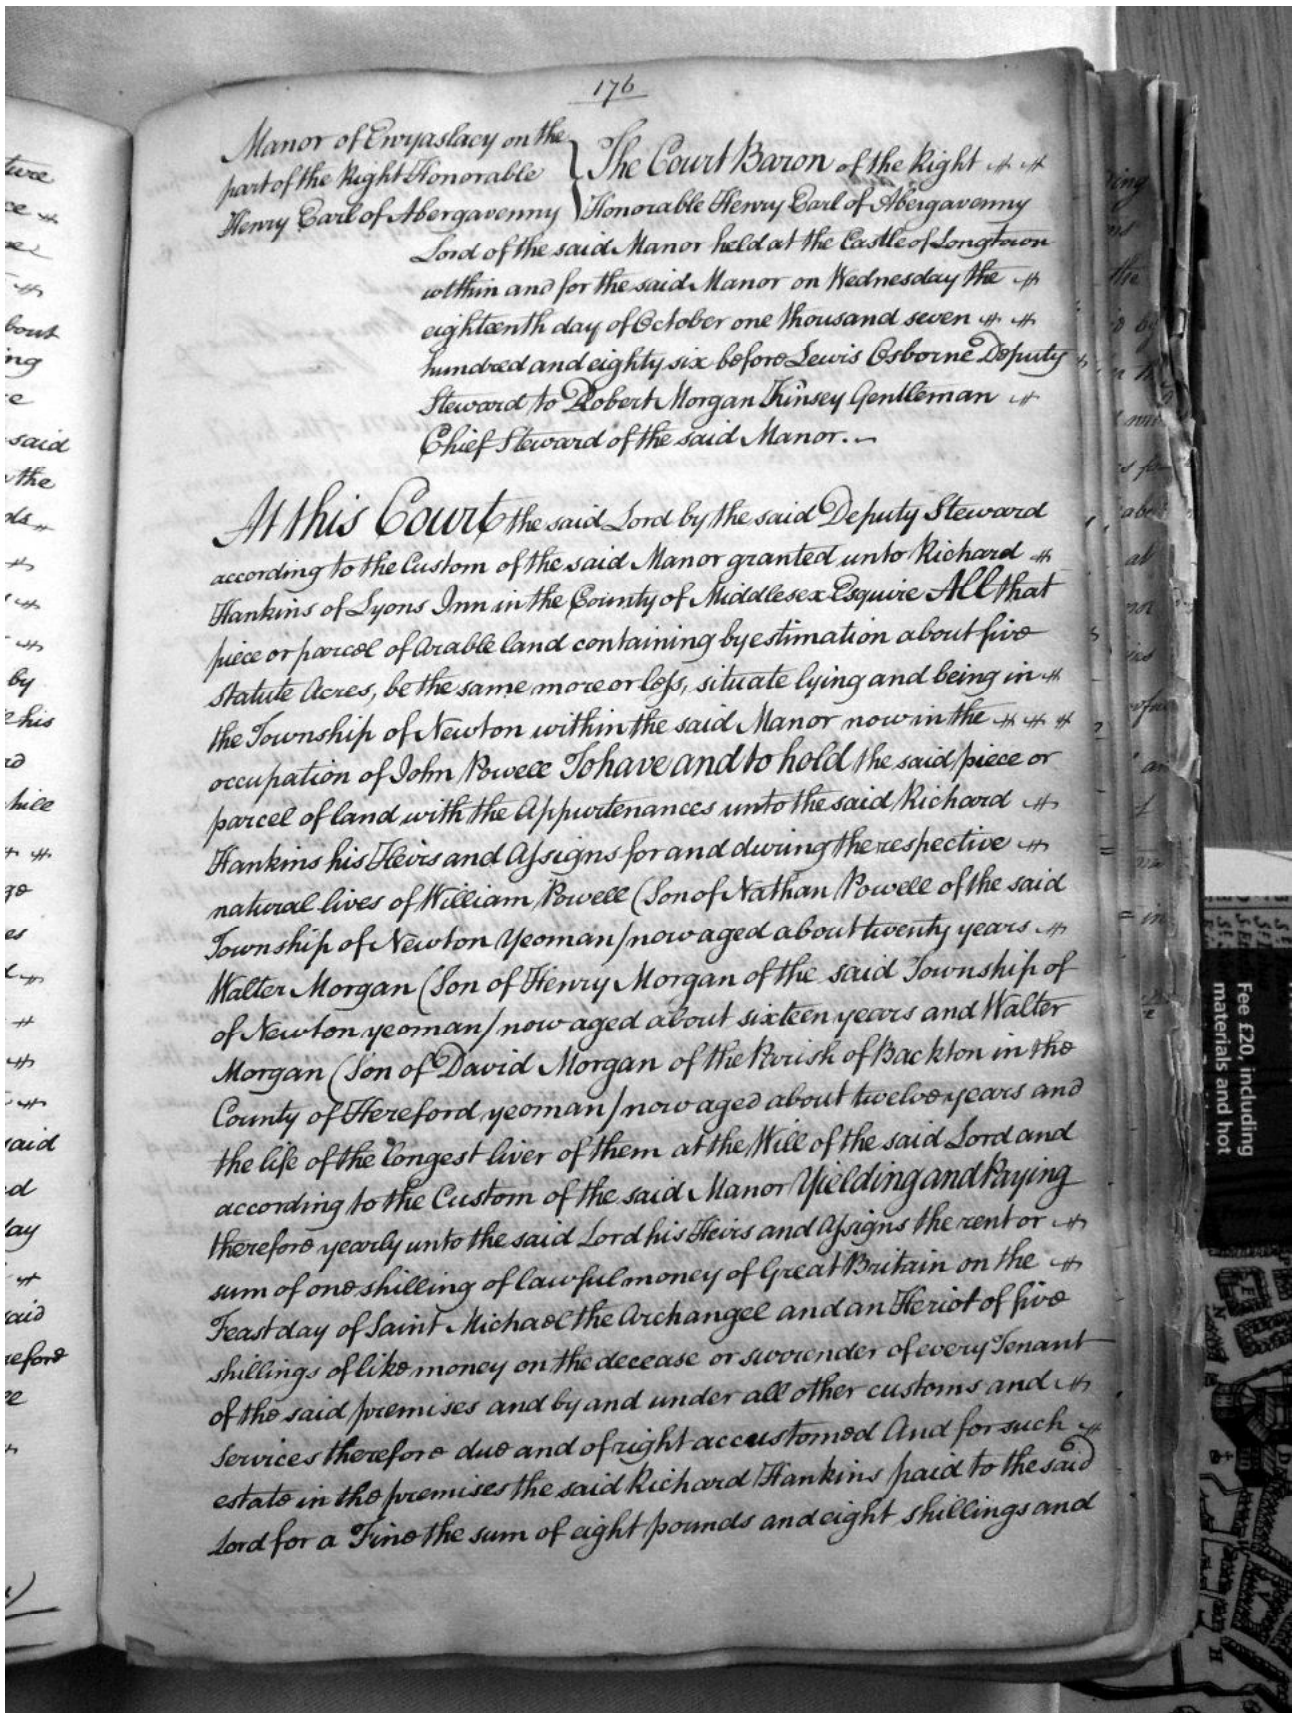 176
Manor of Ewyaslacy on the
part of the Right Honorable
Henry Earl of Abergavenny
The Court Baron of the Right
Honorable Henry Earl of Abergavenny
Lord of the said Manor held at the Castle of Longtown
within and for the said Manor on Wednesday the
eighteenth day of October one thousand seven
hundred and eighty six before Lewis Osborne Deputy
Steward to Robert Morgan Kinsey Gentleman
Chief Steward of the said Manor.
At this Court the said Lord by the said Deputy Steward
according to the Custom of the said Manor granted unto Richard
Hankins of Lyons Inn in the County of Middlesex Esquire All that
piece or parcel of Arable land containing by estimation about five
statute Acres, be the same more or less, situate lying and being in
the Township of Newton within the said Manor now in the
occupation of John Powell To have and to hold the said piece or
parcel of land with the Appurtenances unto the said Richard
Hankins his Heirs and Assigns for and during the respective
natural lives of William Powell (Son of Nathan Powell of the said
Township of Newton Yeoman) now aged about twenty years
Walter Morgan (Son of Henry Morgan of the said Township of
of Newton yeoman) now aged about sixteen years and Walter
Morgan (Son of David Morgan of the Parish of Backton in the
County of Hereford yeoman) now aged about twelve years and
the life of the longest liver of them at the Will of the said Lord and
according to the Custom of the said Manor Yielding and Paying
therefore yearly unto the said Lord his Heirs and Assigns the rent or
sum of one shilling of lawful money of Great Britain on the
Feast day of Saint Michael the Archangel and an Heriot of five
shillings of like money on the decease or surrender of every Tenant
of the said premises and by and under all other customs and
services therefore due and of right accustomed And for such
estate in the premises the said Richard Hankins paid to the said
Lord for a Fine the sum of eight pounds and eight shillings and
bout
said
the
by
his
said
said
Fee £20, including
materials and hot